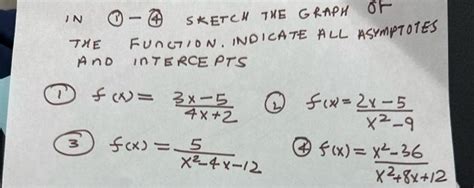 IN ① - ④ SKETCH THE GRAPH OF
THE FUNCTION. INDICATE ALL ASYMPTOTES
AND INTERCEPTS
① f(x) = 3x-5 / 4x+2 ② f(x) = 2x-5 / x²-9
③ f(x) = 5 / x²-4x-12 ④ f(x) = x²-36 / x²+8x+12